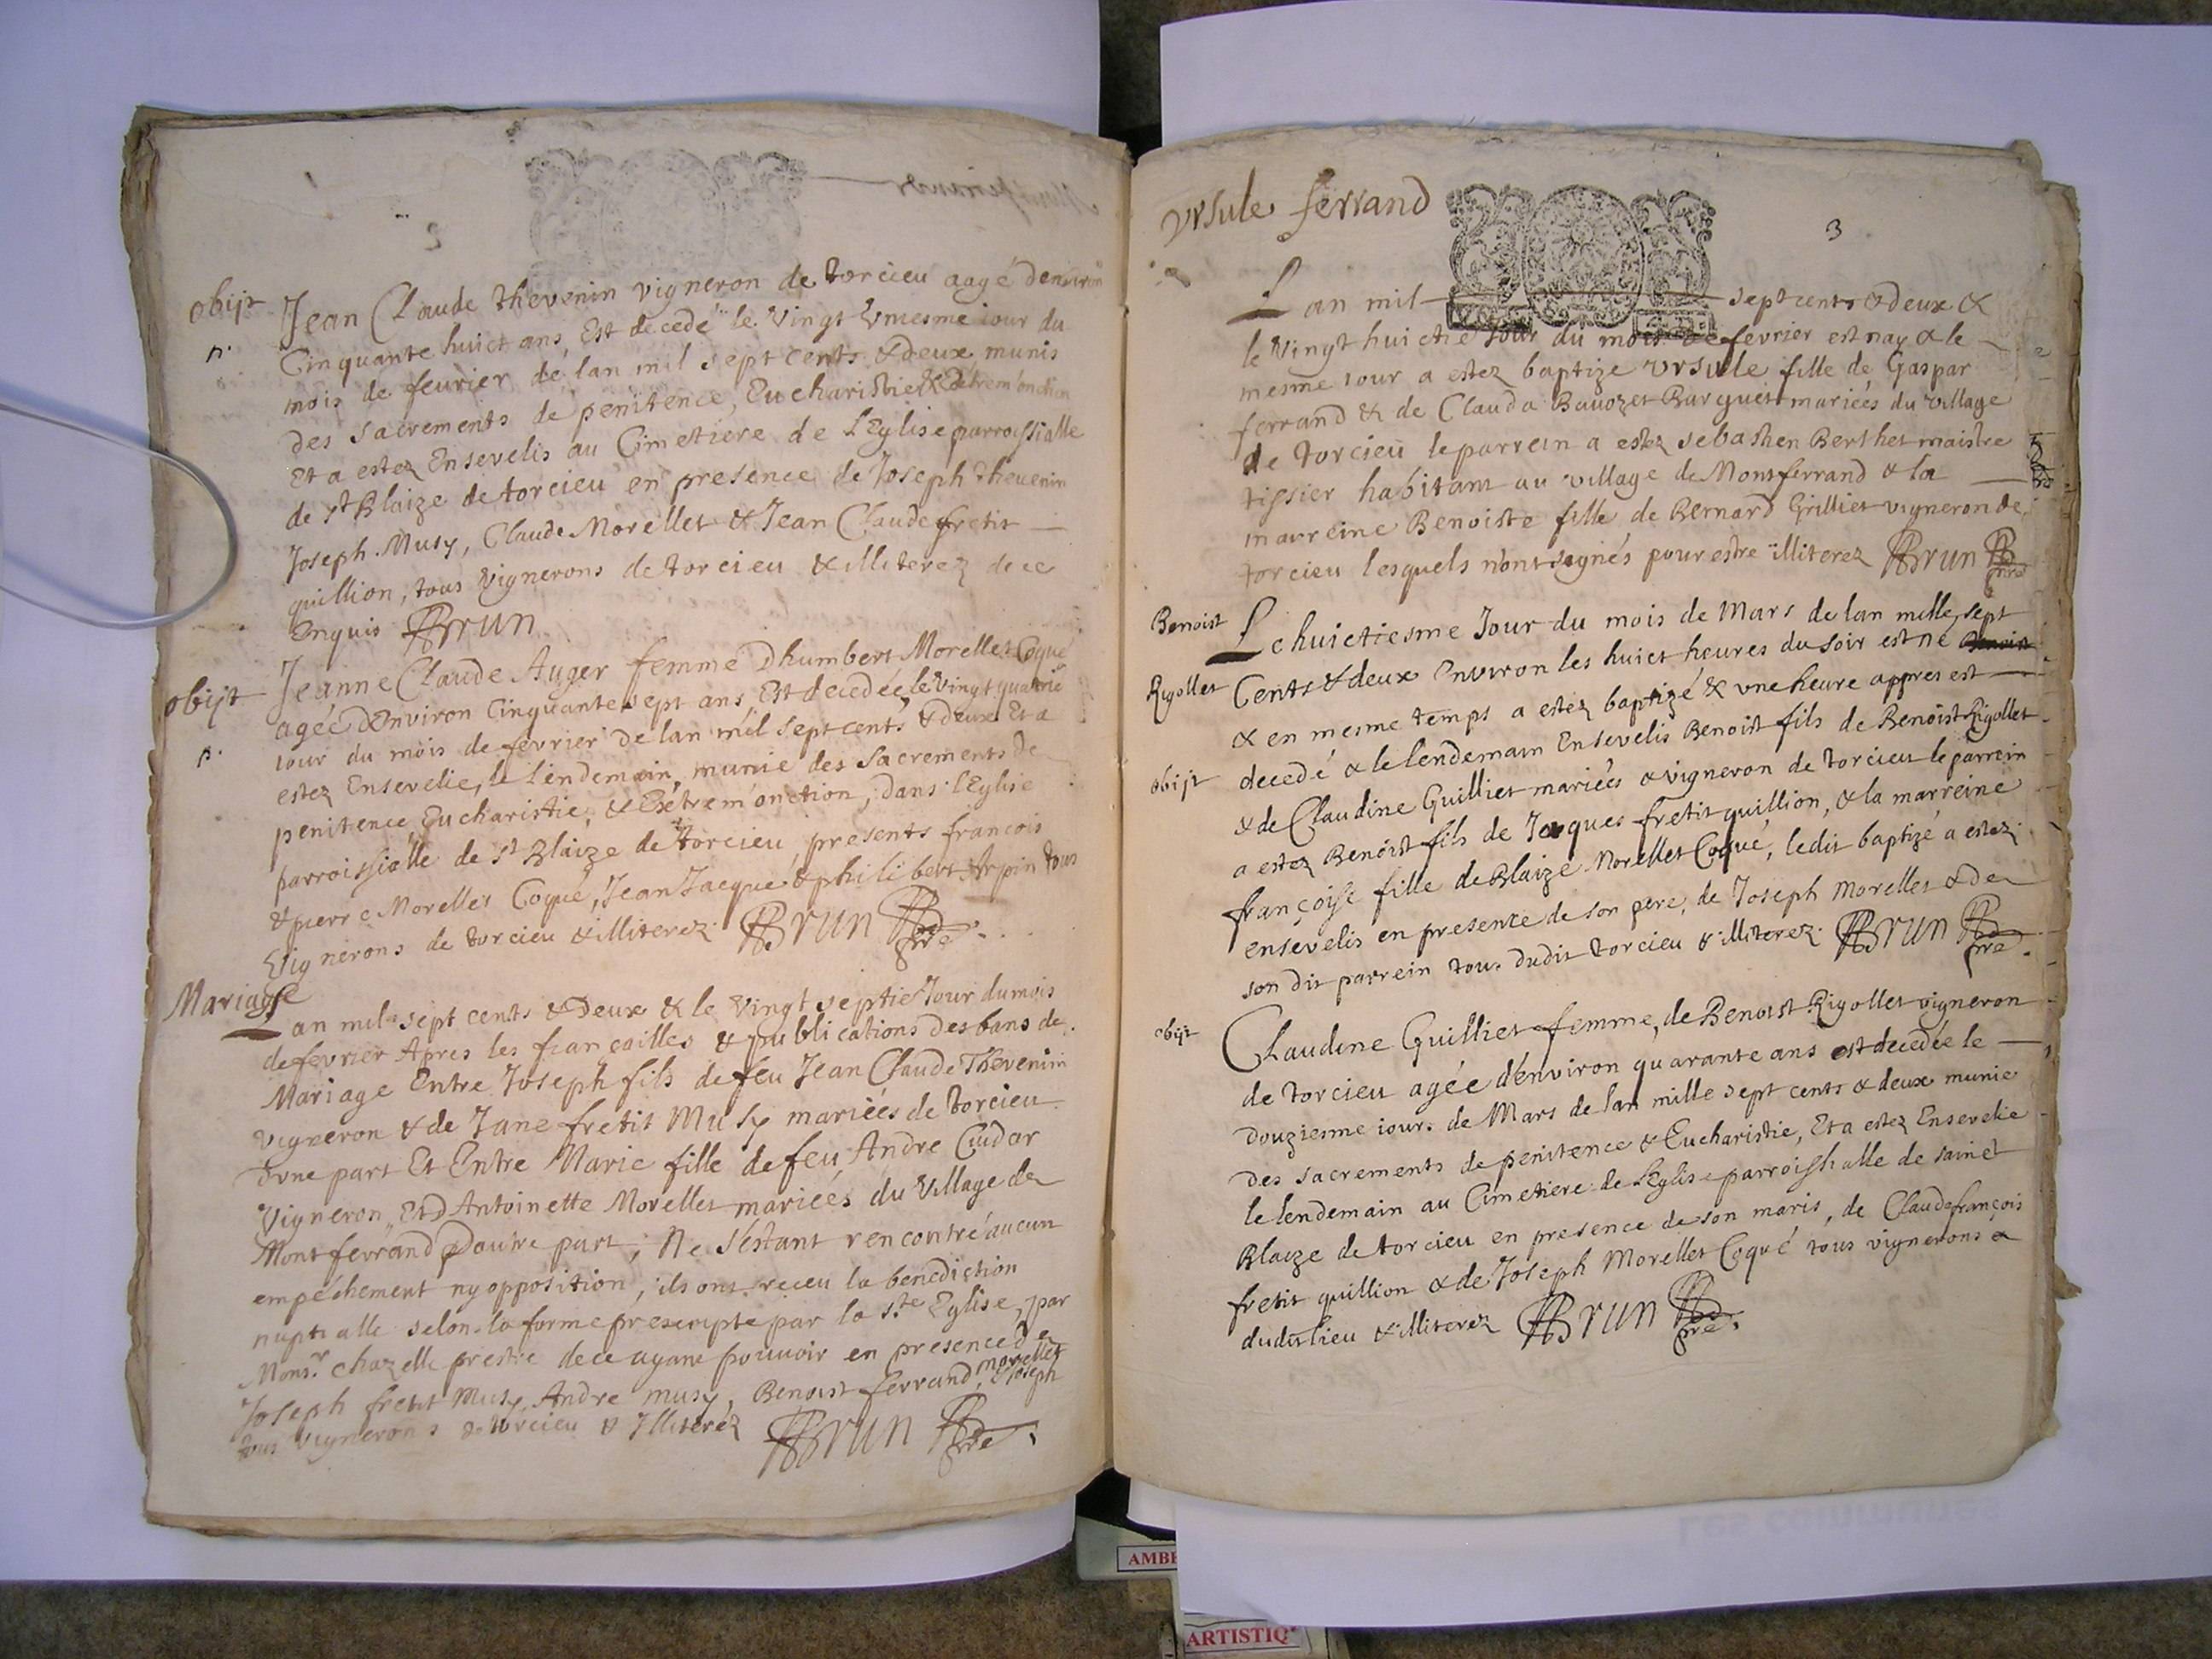 obijt
Jean Claude Thevenin vigneron de torcieu aagé denviron
Cinquante huict ans, Est decedé le Vingt Vnnesme iour du
mois de feurier de lan mil sept cents & deux munis
des sacrements de penitence, Eucharistie & Extrem'onction
Et a estez Ensevelis au Cimetiere de l'Eglise parroissialle
de st Blaize de torcieu en presence de Joseph Thevenin
Joseph Musy, Claude Morellet & Jean Claude fretit
quillion, tous Vignerons de torcieu & illiterez de ce
Enquis Brun
obijt
Jeanne Claude Auger femme Dhumbert Morellet Coqué
agée d'Environ Cinquante sept ans, Est decedée, le Vingt quatrie
iour du mois de fevrier de lan mil sept cents & deux Et a
estez Ensevelie, le lendemain, munie des sacrements de
penitence, Eucharistie, & Extrem'onction, dans l'Eglise
parroissialle de st Blaize de torcieu presents francois
& pierre Morellet Coqué, Jean Jacque & philibert Arpin tous
Vignerons de torcieu & illiterez Brun pre
Mariage
Lan mil sept cents & Deux & le Vingt septie Jour du mois
de fevrier Apres les françailles & publications des bans de
Mariage Entre Joseph fils de feu Jean Claude Thevenin
vigneron & de Jane fretit Musy mariées de torcieu
d'vne part Et Entre Marie fille de feu Andre Cuidar
Vigneron, Et d'Antoinette Morellet mariées du Village de
Montferrand d'autre part, Ne s'estant rencontré aucun
empéchement ny opposition, ils ont receu la benediction
nuptialle selon la forme prescripte par la ste Eglise, par
Monsr chazelle prestre de ce ayant pouvoir en presence de
Joseph fretit Musy, Andre musy, Benoist ferrand, & Joseph morellet
tous vignerons de torcieu & Illiterez Brun pre
Vrsule ferrand
3
Lan mil septcents & deux &
le Vingt huictie Jour du mois de fevrier est nay & le
mesme iour a estez baptize Vrsule fille de Gaspar
ferrand & de Clauda Bavozet Barquet mariées du village
de torcieu le parrein a estez sebastien Berthet maistre
tissier habitant au village de Montferrand & la
marreine Benoiste fille de Bernard Grilliet vigneron de
torcieu lesquels n'ont signés pour estre illiterez Brun pre
Benoist
Rigollet
Le huictiesme Jour du mois de Mars de lan mille sept
Cents & deux Environ les huict heures du soir est né
& en mesme temps a estez baptizé & vne heure appres est
obijt
decedé & le lendemain Ensevelis Benoist fils de Benoist Rigollet
& de Claudine Guilliet mariées & vigneron de torcieu le parrein
a estez Benoist fils de Jacques fretit quillion, & la marreine
françoise fille de Blaize Morellet Coqué, ledit baptizé a estez
ensevelis en presence de son pere, de Joseph Morellet & de
son dit parrein tous dudit torcieu & illiterez Brun pre
obijt
Claudine Guilliet femme, de Benoist Rigollet vigneron
de torcieu agée d'environ quarante ans est decedée le
douziesme iour de Mars de lan mille sept cents & deux munie
des sacrements de penitence & Eucharistie, Et a estez Ensevelie
le lendemain au Cimetiere de l'Eglise parroissialle de sainct
Blaize de torcieu en presence de son maris, de Claude françois
fretit quillion & de Joseph Morellet Coqué tous vignerons
dudit lieu & illiterez Brun pre
ARTISTIQ